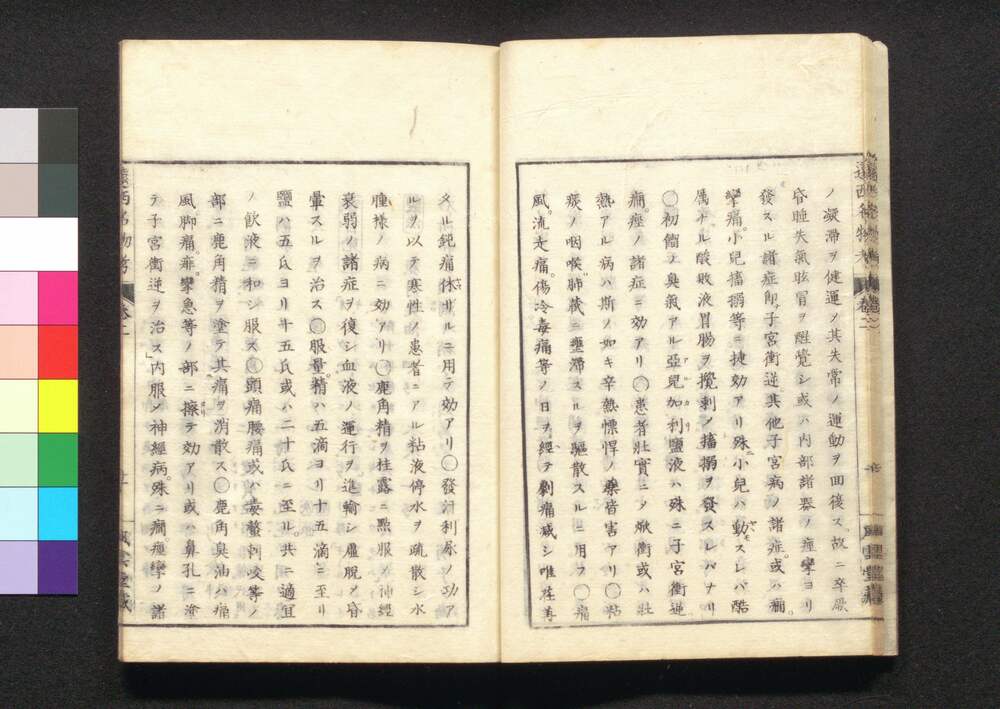 ノ凝滞ヲ健運ノ其失常ノ運動ヲ回復ス。故ニ卒厥
昏睡失氣眩冒ヲ醒覚シ或ハ内部諸器ノ痙攣ヨリ
發スル諸症即子宮衝逆其他子宮病ノ諸症。或ハ癇。
攣痛。小兒搐搦等ニ捷効アリ殊ニ小兒ハ動モスレバ酷
厲ナル酸敗液胃腸ヲ攪刺ノ搐搦ヲ發スレバナリ
〇初篇ノ臭氣アル亞兒加利鹽液ハ殊ニ子宮衝逆
癇。痙ノ諸症ニ効アリ〇患者壯實ニノ焮衝或ハ壯
熱アル病ハ斯ノ如キ辛熱慓悍ノ藥皆害アリ〇粘
痰ノ咽喉肺蔵ニ壅滞スルヲ驅散スルニ用フ〇痛
風。流走痛。傷冷毒痛等ノ日ヲ經テ劇痛減シ唯荏苒
遠西名物考
タル鈍痛休ザルニ用テ効アリ〇發汗利尿ノ功ア
ルヲ以テ寒性ノ患者ニアル粘液停水ヲ疏散シ水
腫様ノ病ニ効アリ〇鹿角精ヲ桂露ニ點服ノ神經
衰弱ノ諸症ヲ復シ血液ノ運行ヲ進輸シ虚脱ノ昏
暈スルヲ治ス〇服量。精ハ五滴ヨリ十五滴ニ至リ
鹽ハ五氏ヨリ十五氏或ハ二十氏ニ至ル。共ニ適宜
ノ飲液ニ和シ服ス〇頭痛腰痛或ハ毒螫刺咬等ノ
部ニ鹿角精ヲ塗テ其痛ヲ消散ス〇鹿角臭油ハ痛
風脚痛。痱。攣急等ノ部ニ擦テ効アリ或ハ鼻孔ニ塗
テ子宮衝逆ヲ治ス」内服ノ神經病。殊ニ癇痙攣ノ諸